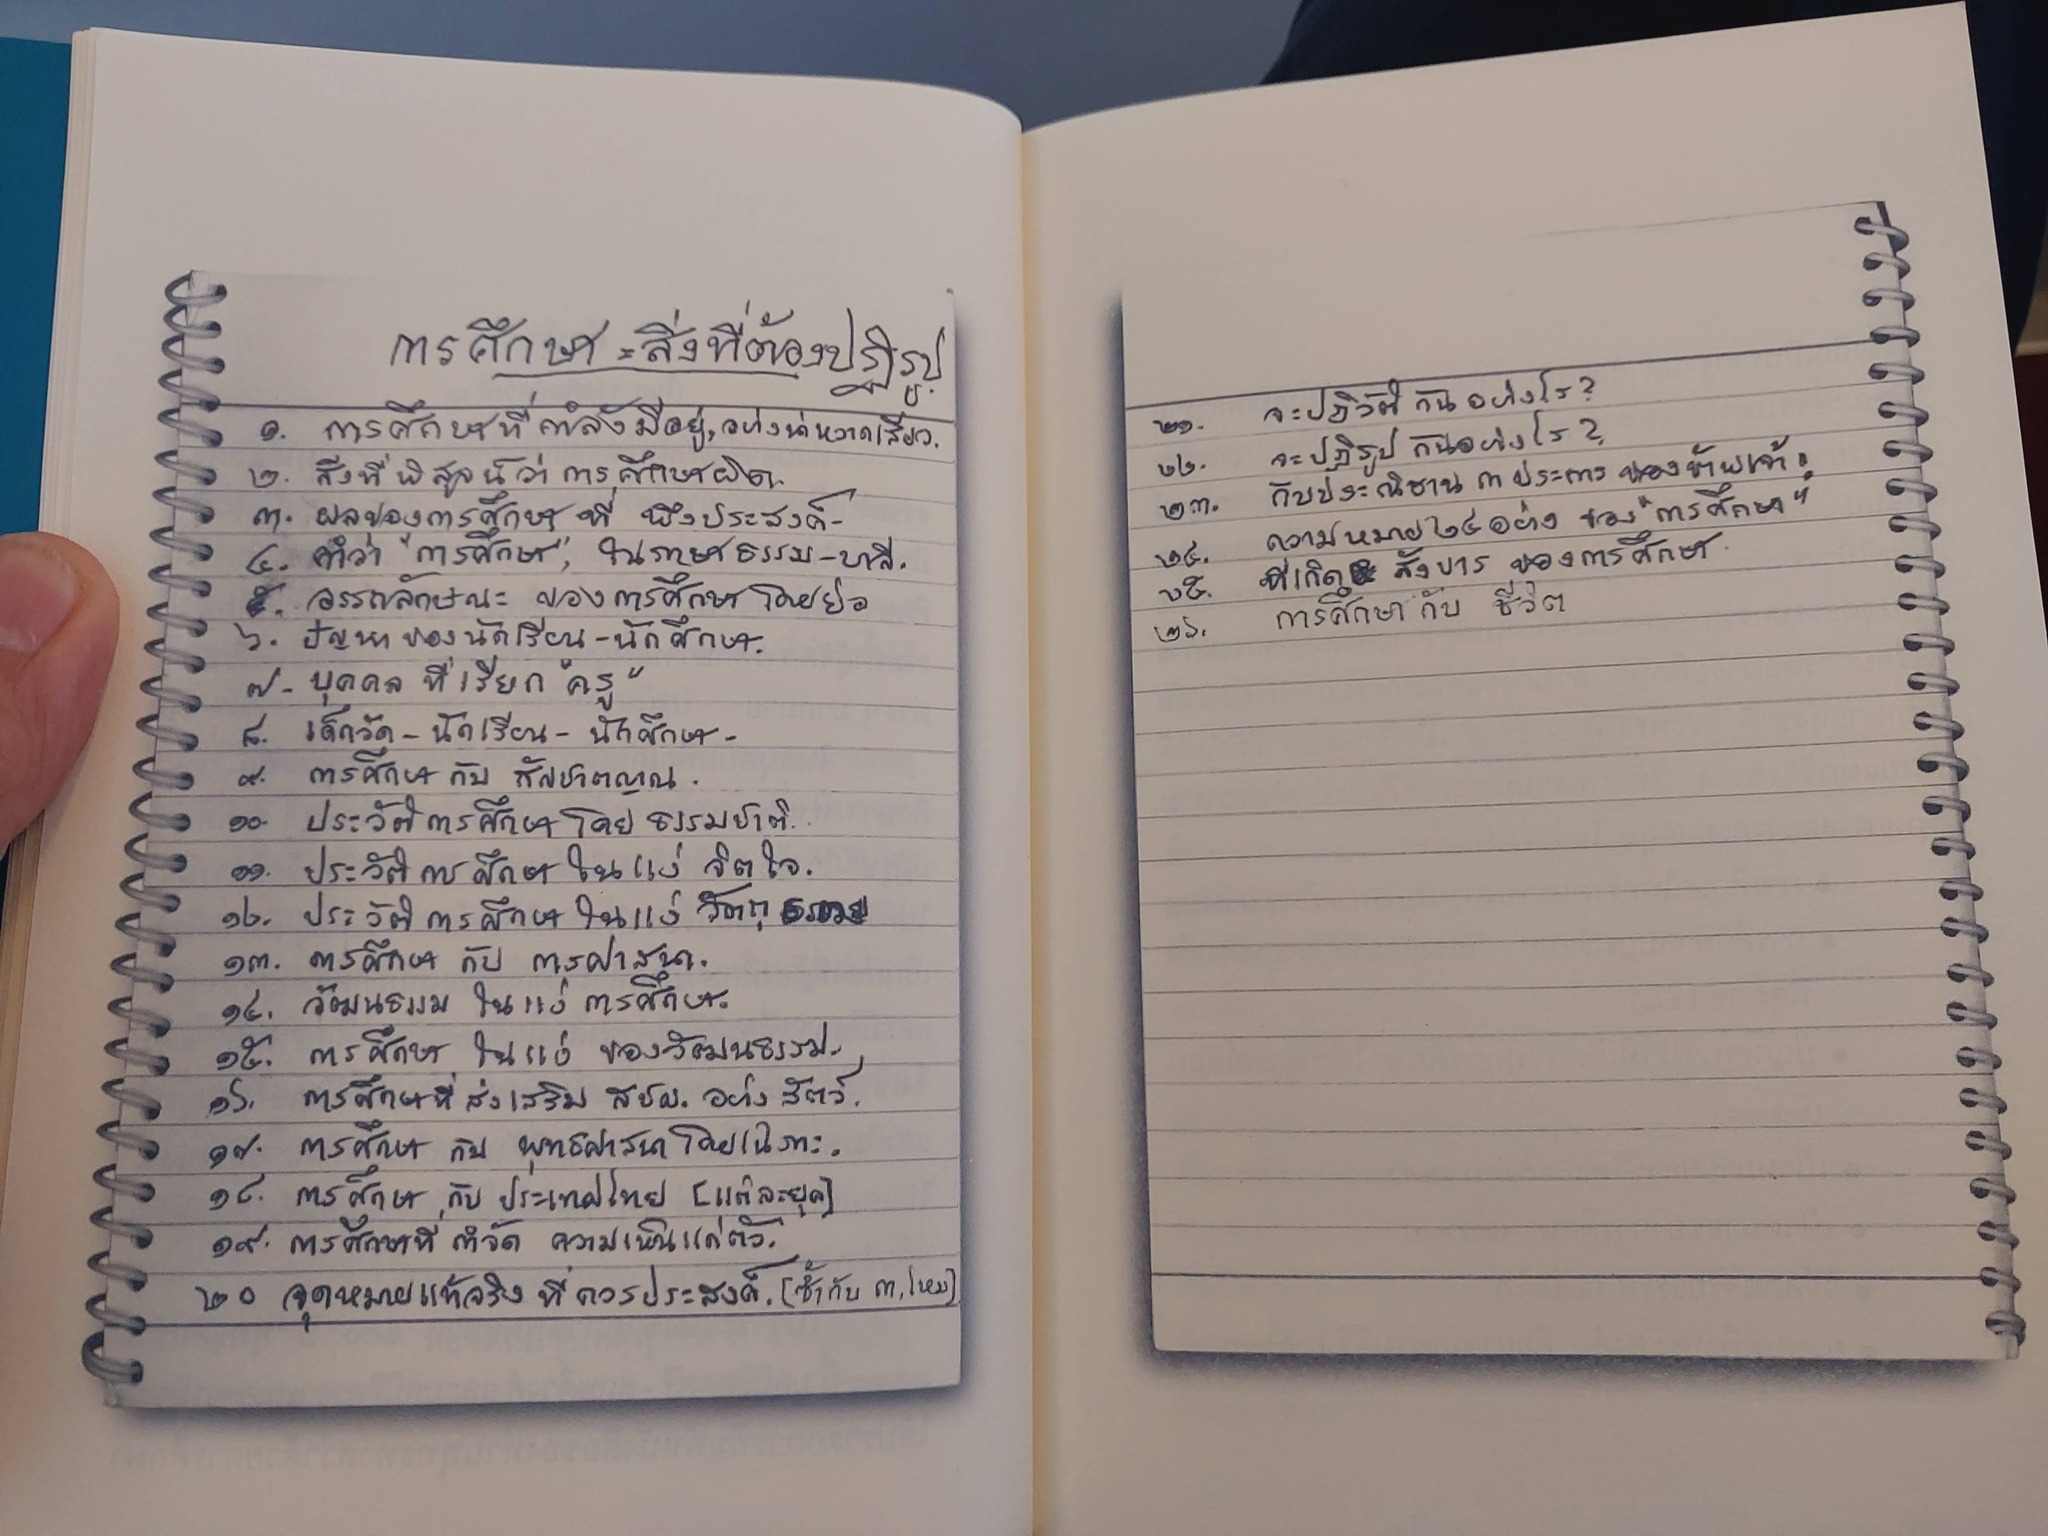 การศึกษา = สิ่งที่ต้องปฏิรูป
๑. การศึกษาที่กำลังมีอยู่, อย่างน่าหวาดเสียว.
๒. สิ่งที่พิสูจน์ว่าการศึกษาผิด.
๓. ผลของการศึกษา ที่ พึงประสงค์-
๔. คำว่า "การศึกษา", ในภาษาธรรม-บาลี.
๕. อรรถลักษณะ ของการศึกษาโดยย่อ
๖. ปัญหาของนักเรียน-นักศึกษา.
๗- บุคคล ที่เรียก "ครู"
๘. เด็กวัด-นักเรียน-นักศึกษา-
๙. การศึกษา กับ สัญชาตญาณ.
๑๐. ประวัติการศึกษาโดย ธรรมชาติ.
๑๑. ประวัติการศึกษา ในแง่ จิตใจ.
๑๒. ประวัติการศึกษาในแง่ วัตถุ
๑๓. การศึกษา กับ การศาสนา.
๑๔. วัฒนธรรม ในแง่ การศึกษา.
๑๕. การศึกษา ในแง่ ของวัฒนธรรม.
๑๖. การศึกษาที่ส่งเสริม สชญ. อย่าง สัตว์.
๑๗. การศึกษา กับ พุทธศาสนาโดยเฉพาะ.
๑๘. การศึกษา กับ ประเทศไทย [แต่ละยุค]
๑๙. การศึกษาที่ กำจัด ความเห็นแก่ตัว.
๒๐ จุดหมายแท้จริง ที่ควรประสงค์. [ซ้ำกับ ๓, ไหม]
๒๑. จะปฏิวัติ กันอย่างไร?
๒๒. จะปฏิรูป กันอย่างไร?
๒๓. กับประณิธาน ๓ ประการ ของข้าพเจ้า.
๒๔. ความหมาย ๒๔ อย่าง ของ "การศึกษา"
๒๕. ที่เกิด สังขาร ของการศึกษา.
๒๖. การศึกษา กับ ชีวิต